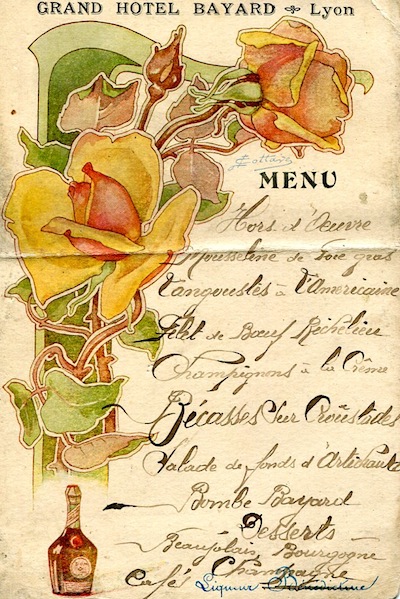 GRAND HOTEL BAYARD Lyon
MENU
Hors d'Œuvre
Mousseline de Foie gras
Langoustes à l'Américaine
Filet de Bœuf Richelieu
Champignons à la Crême
Bécasses sur Croûstades
Salade de fonds d'Artichauts
Bombe Bayard
Desserts
Beaujolais Bourgogne
Champagne
Cafés Liqueur Bénédictine